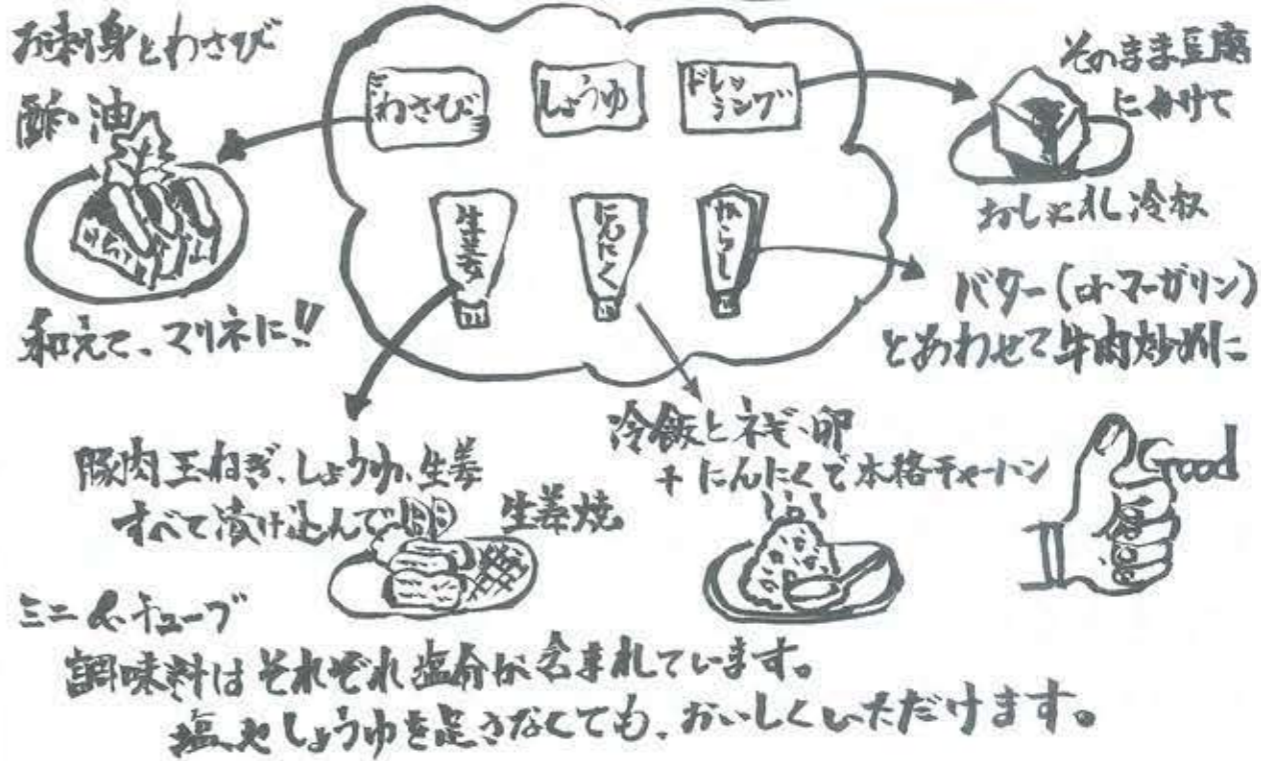 お刺身とわさび
酢・油
和えて、マリネに!!
ミニ
わさび
しょうゆ
ドレッ
シング
そのまま豆腐
にかけて
おしゃれ冷奴
生姜
にんにく
からし
バター(orマーガリン)
とあわせて牛肉炒めに
豚肉玉ねぎ、しょうゆ、生姜
すべて漬け込んで
生姜焼
冷飯とネギ、卵
+にんにくで本格チャーハン
Good
ミニ&チューブ
調味料はそれぞれ塩分が含まれています。
塩やしょうゆを足さなくても、おいしくいただけます。